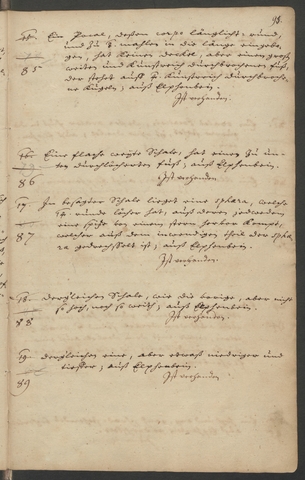 98.
15. Ein Pocal, dessen corps länglicht-rund,
und zu 8. mahlen in die länge eingebo-
gen, hat keinen deckel, aber einen gros
weiten und künstreich durchbrochenen fuß,
85
der stehet auff 8. künstreich durchbroche-
ne Kugeln; auß Elphenbein.
Ist verhanden.
16. Eine flache weite Schale, hat einen zu un-
ten durchlöcherten fuß; auß Elphenbein.
86
Ist verhanden
17. In besagter Schale lieget eine sphæra, welche
runde löcher hat, auß deren jedwedem
eine spitze bey einem stern herbey kompt,
87
welcher auß dem inwendigen theil der sphæ-
ra gedrechselt ist; auß Elphenbein.
Ist verhanden.
18. dergleichen Schale, wie die vorige, aber nicht
so hoch, noch so weit; auß Elphenbein.
88
Ist verhanden.
19. dergleichen eine, aber etwas niedriger und
tieffer; auß Elphenbein.
89
Ist verhanden